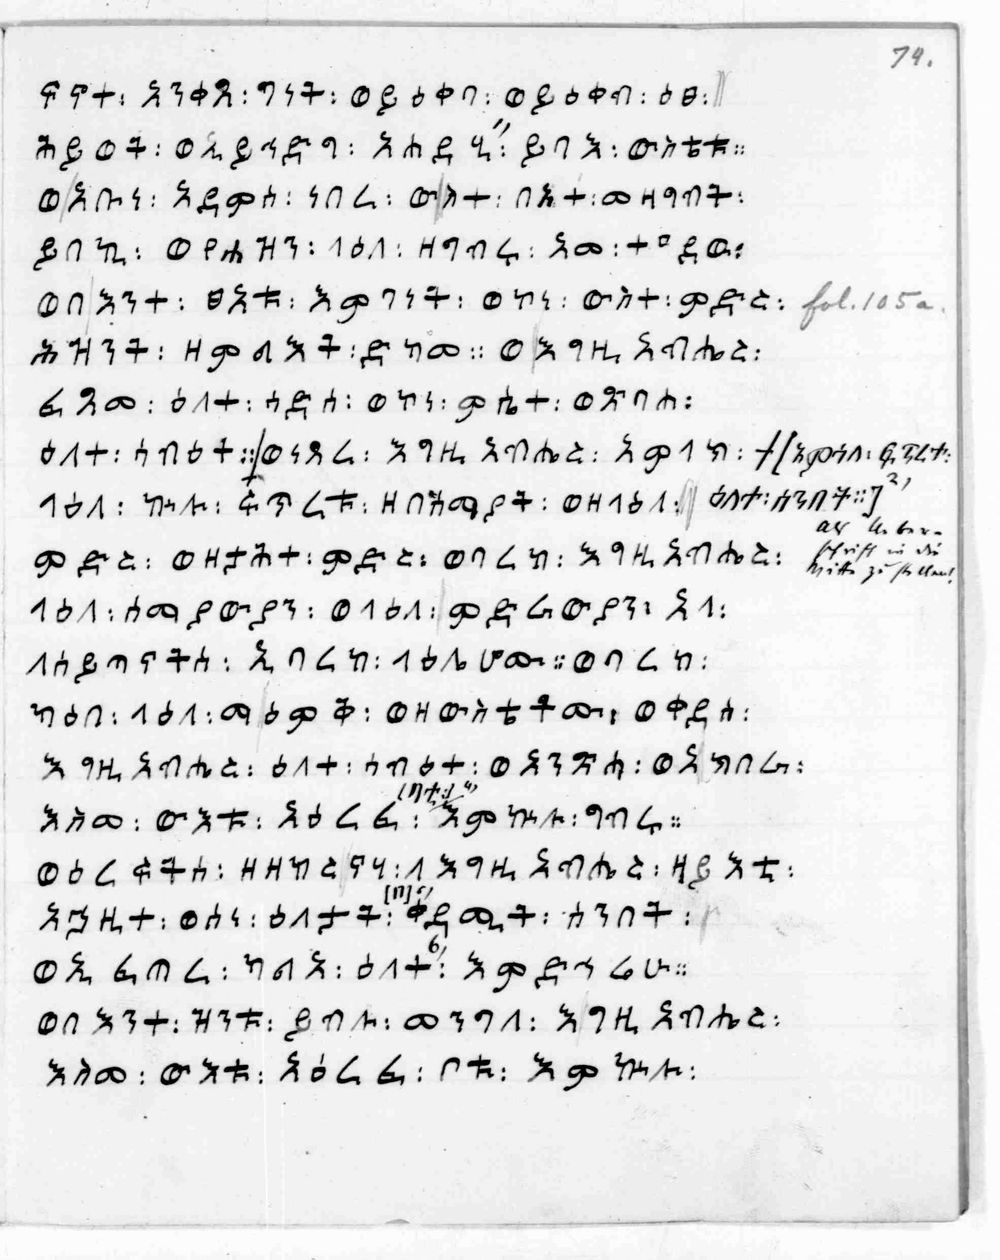 74.
ፍኖተ፡ አንቀጸ፡ ገነት፡ ወይዕቀባ፡ ወይዕቀብ፡ ዕፀ፡
ሕይወት፡ ወኢይኅድግ፡ አሐደሂ፡ ይባእ፡ ውስቴቱ።
ወአቡነ፡ አዳምሰ፡ ነበረ፡ ውስተ፡ በአተ፡ መዛግብት፡
ይበኪ፡ ወየሐዝን፡ ላዕለ፡ ዘግብሩ፡ አመ፡ ተዐደወ፡
ወበእንተ፡ ፀአቱ፡ እምገነት፡ ወኮነ፡ ውስተ፡ ምድር፡ fol. 105a.
ሕዝንት፡ ዘምልእት፡ ድካመ። ወእግዚአብሔር፡
ፈጸመ፡ ዕለተ፡ ሳድስ፡ ወኮነ፡ ምሴተ፡ ወጽባሐ፡
ዕለተ፡ ሰብዕት። ወነጸረ፡ እግዚአብሔር፡ አምላክ፡
ላዕለ፡ ኵሉ፡ ፍጥረቱ፡ ዘበሰማያት፡ ወዘላዕለ፡ ዕለተ፡ ሰንበት።] 2)
ምድር፡ ወዘታሕተ፡ ምድር፡ ወባረከ፡ እግዚአብሔር፡
ላዕለ፡ ሰማያውያን፡ ወላዕለ፡ ምድራውያን፡ አላ፡
ለሰይጣናትሰ፡ ኢባረከ፡ ላዕሌሆሙ። ወባረከ፡
ካዕበ፡ ላዕለ፡ ማዕምቅ፡ ወዘውስቴቶሙ፡ ወቀደሰ፡
እግዚአብሔር፡ ዕለተ፡ ሰብዕተ፡ ወአንጽሐ፡ ወአክበራ፡
እስመ፡ ውእቱ፡ አዕረፈ፡ እምኵሉ፡ ግብሩ።
ወዕረፍትሰ፡ ዘዘከርናሃ፡ ለእግዚአብሔር፡ ዛይእቲ፡
ወኢፈጠረ፡ ካልአ፡ ዕለተ፡ እምድኅሬሁ።
ወበእንተ፡ ዝንቱ፡ ይብሉ፡ መንግለ፡ እግዚአብሔር፡
እስመ፡ ውእቱ፡ አዕረፈ፡ ቦቱ፡ እምኵሉ፡